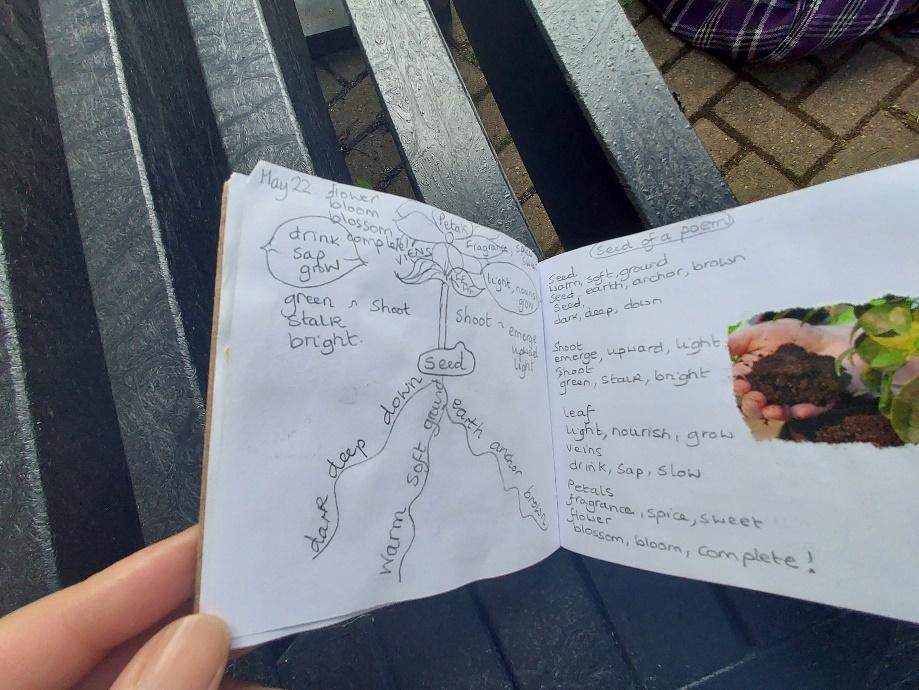 May 22
flower
bloom
blossom
complete!
drink
sap
grow
VEINS
Petals
Fragrance, spice
LEAF
light, nourish
grow
green ~ Shoot
stalk
bright.
Shoot ~ emerge
upward
light
Seed
dark deep down
Warm Soft ground
earth anchor brown
Seed of a poem
Seed
warm, soft, ground
Seed, earth, anchor, brown
Seed,
dark, deep, down
Shoot
emerge, upward, light
Shoot
green, stalk, bright
leaf
light, nourish, grow
veins
drink, sap, slow
Petals
fragrance, spice, sweet
flower
blossom, bloom, complete!